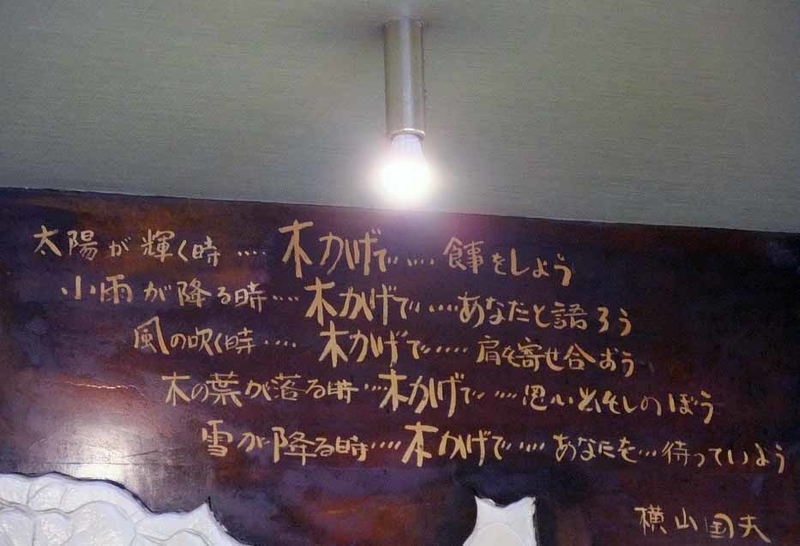 太陽が輝く時‥‥木かげで‥‥食事をしよう
小雨が降る時‥‥木かげで‥‥あなたと語ろう
風の吹く時‥‥木かげで‥‥‥肩を寄せ合おう
木の葉が落る時‥‥木かげで‥‥‥思い出をしのぼう
雪が降る時‥‥木かげで‥‥あなたを‥‥待っていよう
横山国夫